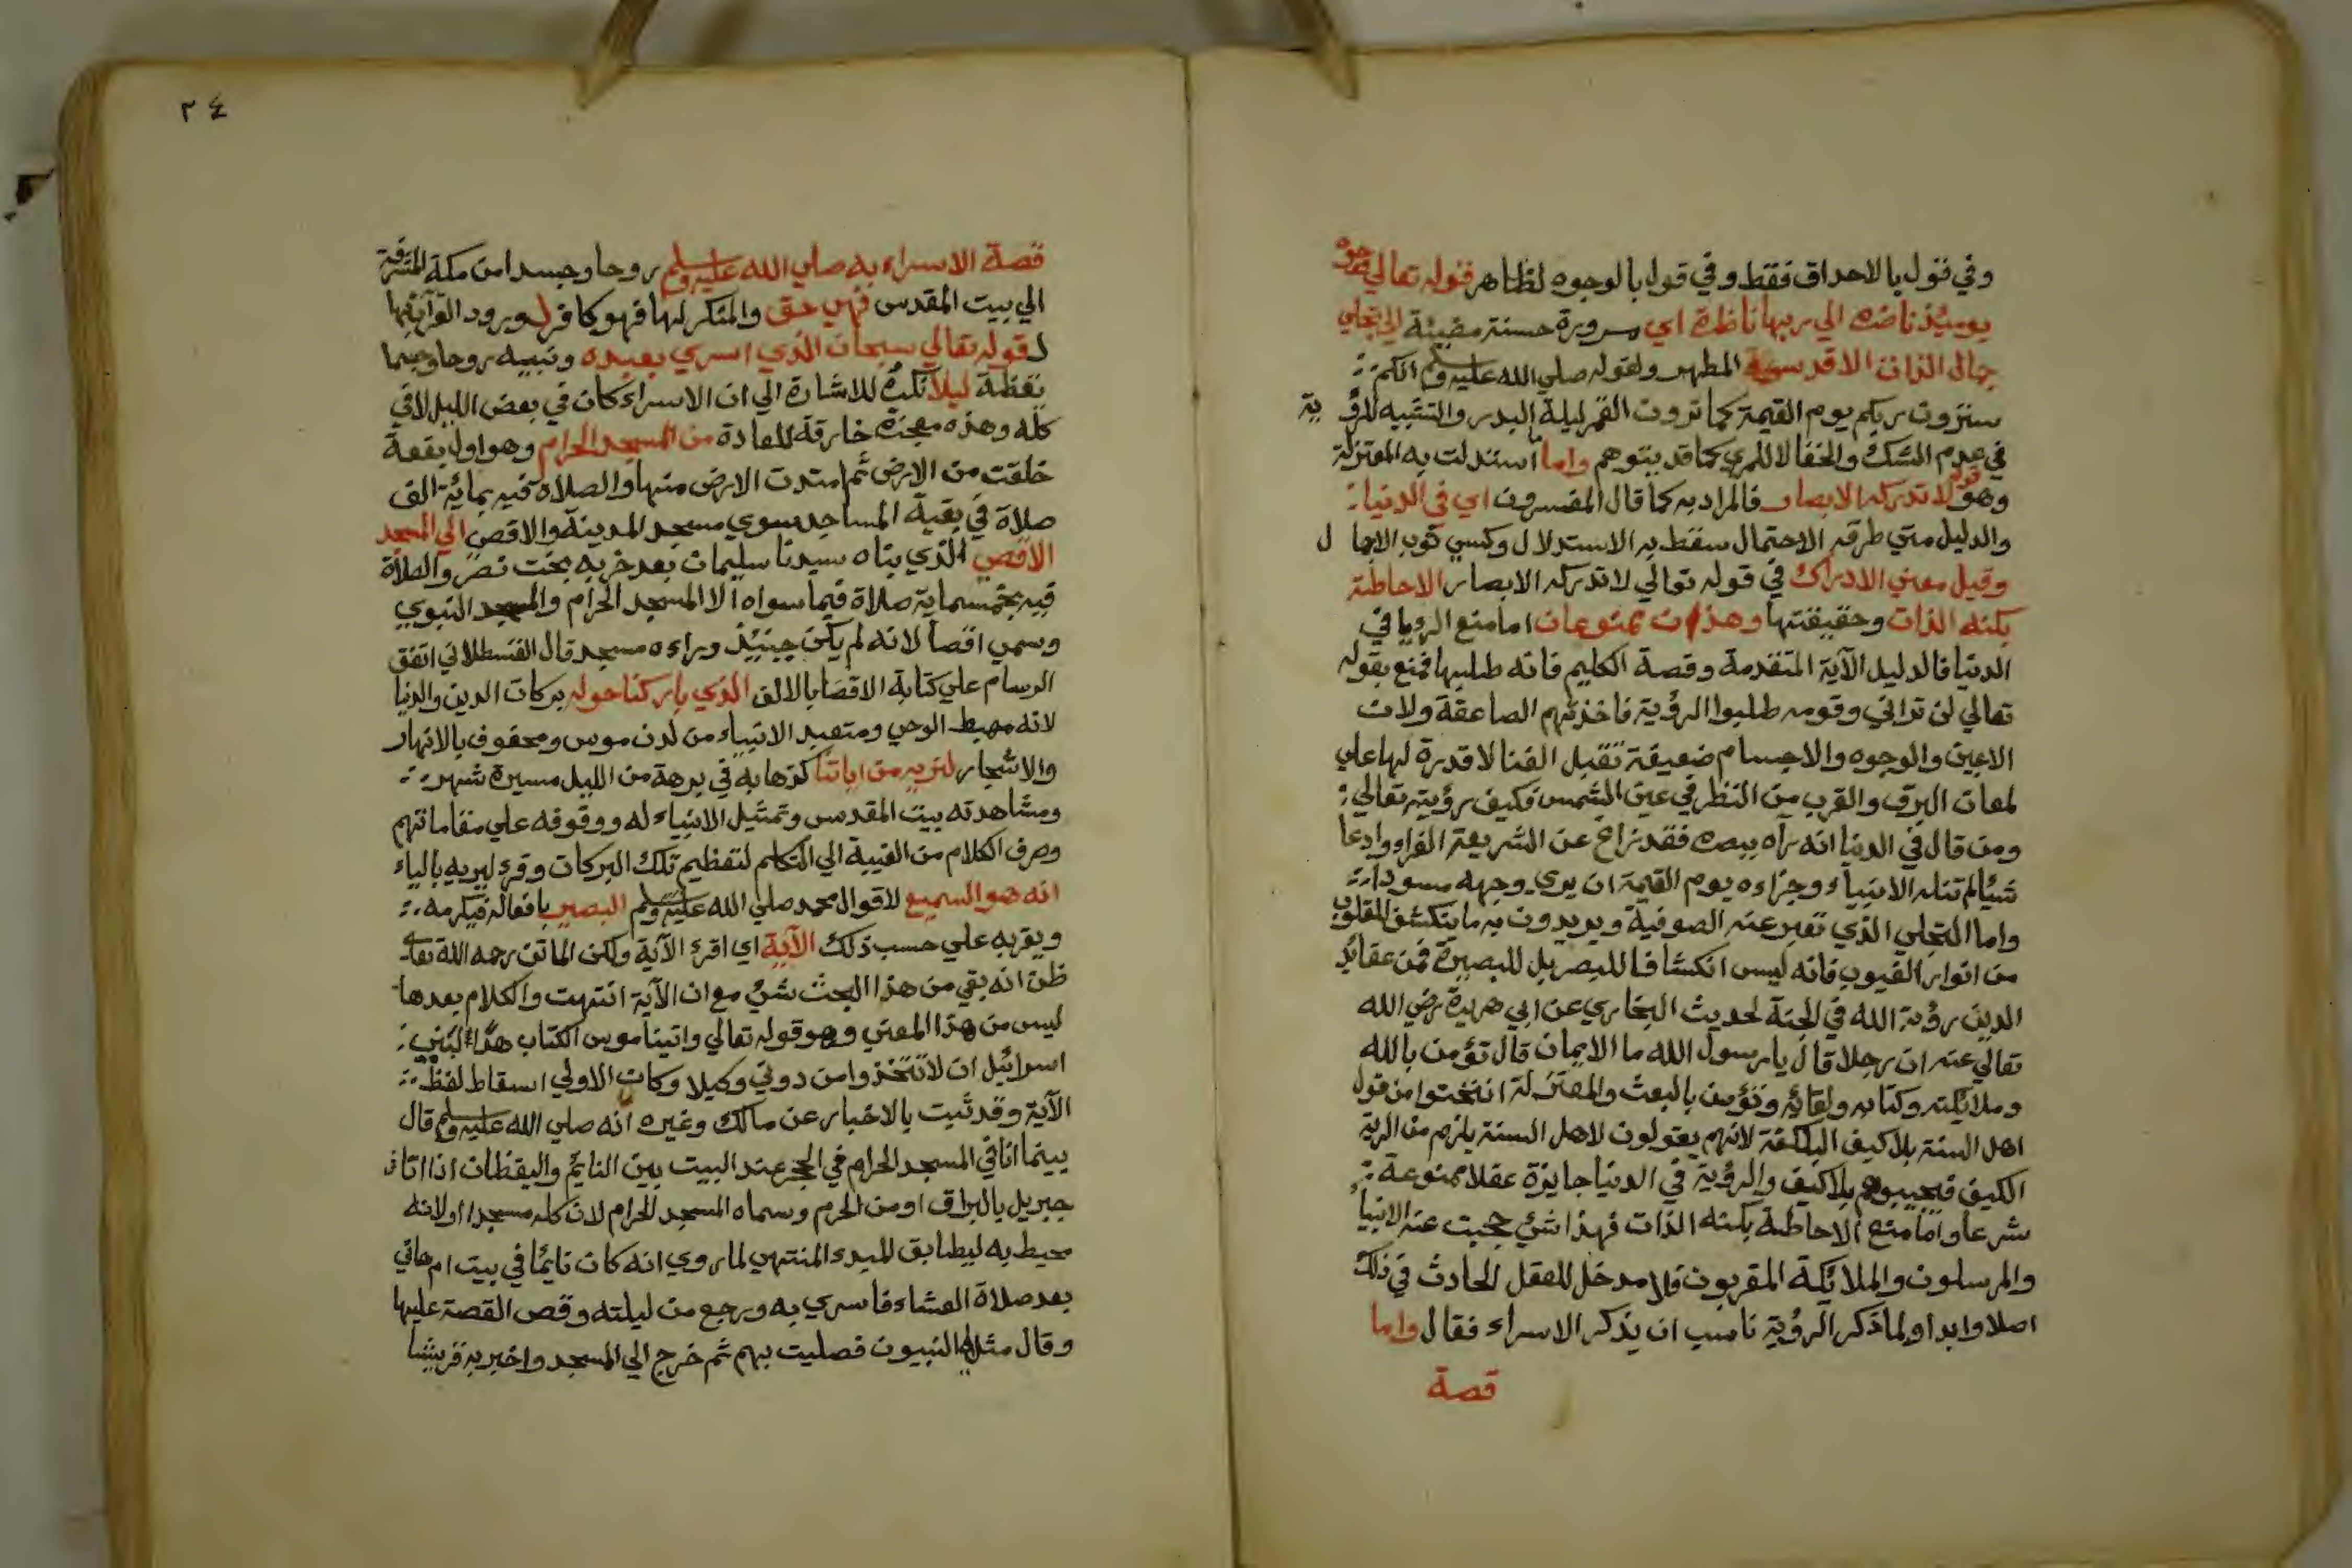 وفي قول بالاحداق فقط وفي قول بالوجوه لظاهر قوله تعالي وجوه
يوميئذ ناضره الي ربها ناظرة اي مسرورة حسنة مضيئة الي تجلي
جمال الذات الاقدسية المطهر ولقوله صلي الله عليه وسلم انكم
سترون ربكم يوم القيمة كما ترون القمر ليلة البدر والتشبيه للرؤية
في عدم الشك والخفا لا للمري كما قد يتوهم واما استدلت به المعتزلة
وهو قوله لا تدركه الابصار فالمراد به كما قال المفسرون اي في الدنيا
والدليل متي طرقه الاحتمال سقط به الاستدلال وكسي ثوب الاجمال
وقيل معني الادراك في قوله تعالي لا تدركه الابصار الاحاطة
بكنه الذات وحقيقتها وهذان ممنوعان اما منع الرويا في
الدنيا فالدليل الآية المتقدمة وقصة الكليم فانه طلبها فمنع بقوله
تعالي لن تراني وقومه طلبوا الرؤية فاخذتهم الصاعقة ولان
الاعين والوجوه والاجسام ضعيفة تقبل الفنا لا قدرة لها علي
لمعان البرق والقرب من النظر في عين الشمس فكيف رؤيته تعالي
ومن قال في الدنيا انه يراه ببصره فقد زاغ عن الشريعة الغراء وادعا
شيئا لم تنله الانبياء وجزاءه يوم القيمة ان يري وجهه مسودا
واما التجلي الذي تعبر عنه الصوفية ويريدون به ما ينكشف للقلوب
من انوار الغيوب فانه ليس انكشافا للبصر بل للبصيرة فمن عقائد
الدين رؤية الله في الجنة لحديث البخاري عن ابي هريرة رضي الله
تعالي عنه ان رجلا قال يا رسول الله ما الايمان قال تؤمن بالله
وملائكته وكتابه ولقائه وتؤمن بالبعث والمعتزلة انتختوا من قول
اهل السنة بلا كيف البلكفة لانهم يقولون لاهل السنة يلزم من الرية
الكيف فيجيبوهم بلا كيف والرؤية في الدنيا جايزة عقلا ممنوعة
شرعا واما منع الاحاطة بكنه الذات فهذا شئ حجبت عنه الانبيا
والمرسلون والملائكة المقربون فلا مدخل للعقل الحادث في ذلك
اصلا وابدا ولما ذكر الرؤية ناسب ان يذكر الاسراء فقال واما
قصة
٣٤
قصة الاسراء به صلي الله عليه وسلم روحا وجسدا من مكة المشرفة
الي بيت المقدس فهي حق والمنكر لها فهو كافر لورود القرآن بها
لقوله تعالي سبحان الذي اسري بعبده ونبيه روحا وجسما
يقظة ليلا نكره للاشارة الي ان الاسراء كان في بعض الليل لا في
كله وهذه معجزة خارقة للعادة من المسجد الحرام وهو اول بقعة
خلقت من الارض ثم امتدت الارض منها والصلاة فيه بمائة الف
صلاة في بقية المساجد سوي مسجد المدينة والاقصي الي المسجد
الاقصي الذي بناه سيدنا سليمان بعد خربه بخت نصر والصلاة
فيه بخمسماية صلاة فيما سواه الا المسجد الحرام والمسجد النبوي
وسمي اقصا لانه لم يكن حينئذ وراءه مسجد قال القسطلاني اتفق
الرسام علي كتابة الاقصا بالالف الذي باركنا حوله بركات الدين والدنيا
لانه مهبط الوحي ومتعبد الانبياء من لدن موسي ومحفوف بالانهار
والاشجار لنريه من اياتنا كذهابه في برهة من الليل مسيرة شهر
ومشاهدته بيت المقدس وتمثيل الانبياء له ووقوفه علي مقاماتهم
وصرف الكلام من الغيبة الي التكلم لتعظيم تلك البركات وقرئ ليريه بالياء
انه هو السميع لاقوال محمد صلي الله عليه وسلم البصير بافعاله فيكرمه
ويقربه علي حسب ذلك الآية اي اقرئ الآية ولكن الماتن رحمه الله تعالي
ظن انه بقي من هذا البحث شئ مع ان الآية انتهت والكلام بعدها
ليس من هذا المعني وهو قوله تعالي واتينا موسي الكتاب هدا لبني
اسرائيل ان لا تتخذوا من دوني وكيلا وكان الاولي اسقاط لفظ
الآية وقد ثبت بالاخبار عن مالك وغيره انه صلي الله عليه وسلم قال
بينما انا في المسجد الحرام في الحجر عند البيت بين النايم واليقظان اذ اتاني
جبريل بالبراق او من الحرم وسماه المسجد الحرام لان كله مسجدا او لانه
محيط به ليطابق المبدء المنتهي لما روي انه كان نايما في بيت ام هاني
بعد صلاة العشاء فاسري به ورجع من ليلته وقص القصة عليها
وقال مثل لي النبيون فصليت بهم ثم خرج الي المسجد واخبر به قريشا